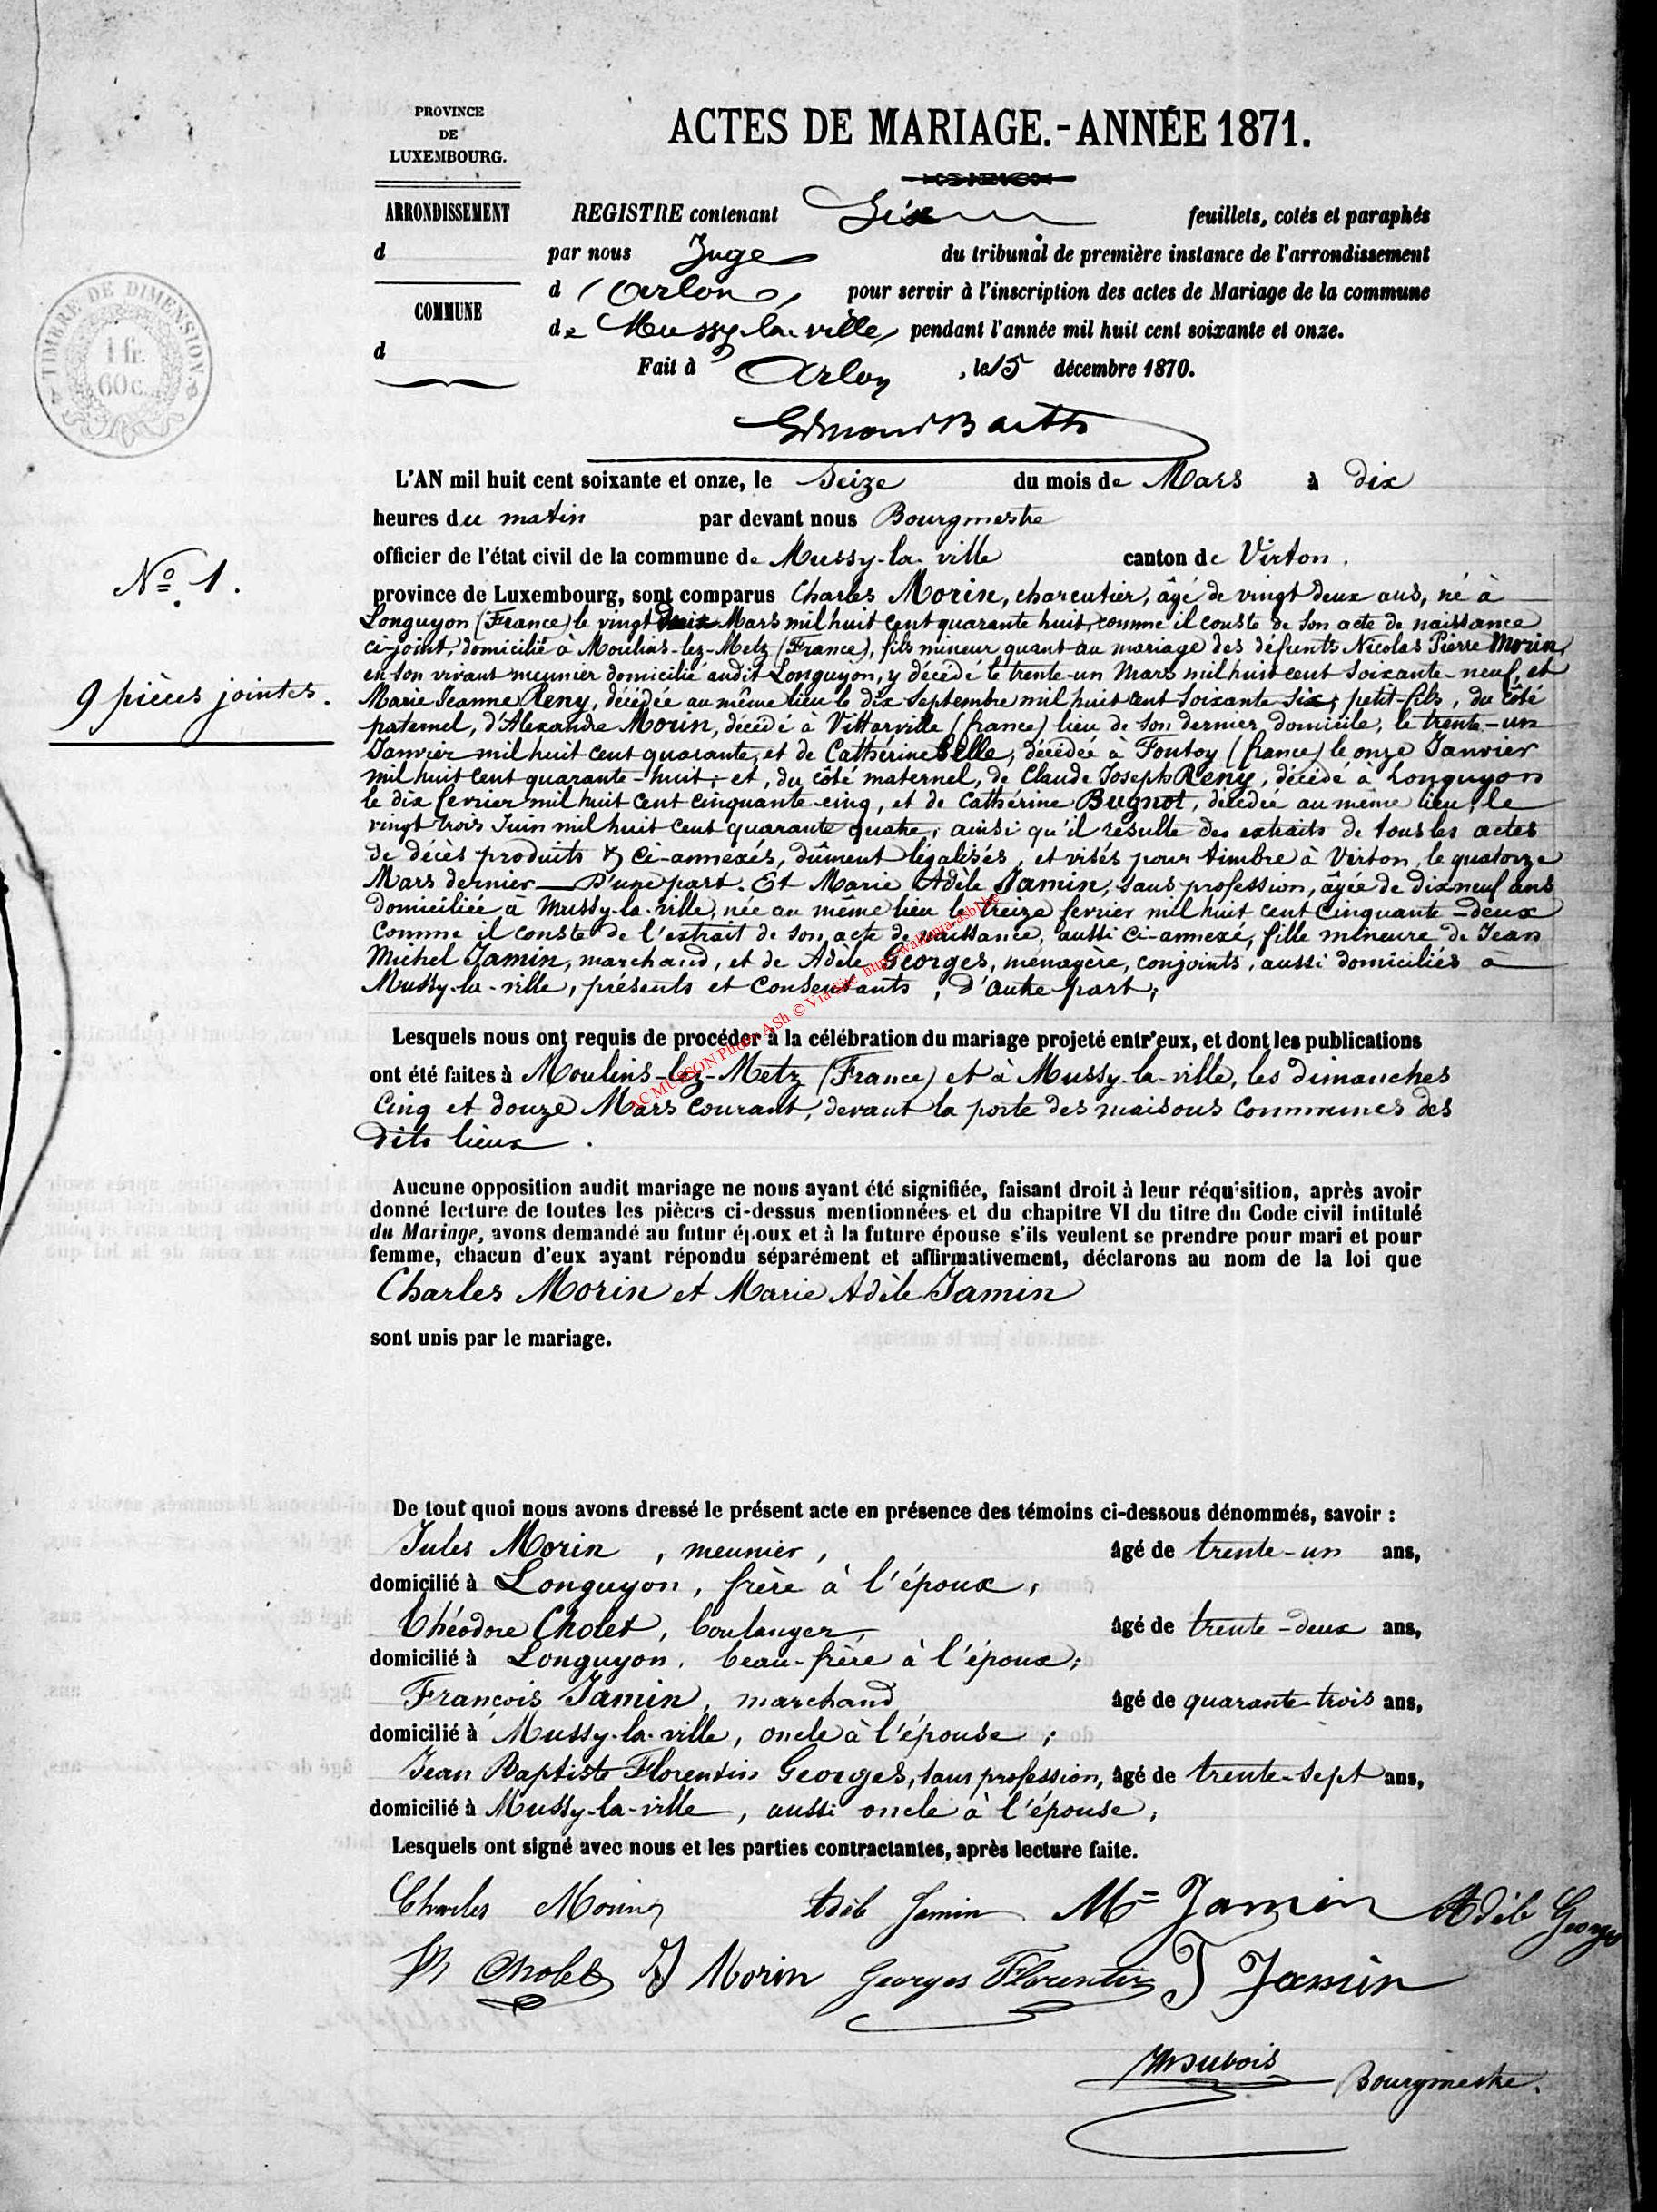 PROVINCE
DE
LUXEMBOURG.
ARRONDISSEMENT
d
COMMUNE
d
TIMBRE DE DIMENSION
1 fr.
60 c.
ACTES DE MARIAGE.-ANNÉE 1871.
REGISTRE contenant Six feuillets, cotés et paraphés
par nous Juge du tribunal de première instance de l'arrondissement
d'Arlon, pour servir à l'inscription des actes de Mariage de la commune
de Mussy-la-ville pendant l'année mil huit cent soixante et onze.
Fait à Arlon, le 15 décembre 1870.
L'AN mil huit cent soixante et onze, le Seize du mois de Mars à dix
heures du matin par devant nous Bourgmestre
officier de l'état civil de la commune de Mussy-la-ville canton de Virton.
No 1.
9 pièces jointes.
province de Luxembourg, sont comparus Charles Morin, charcutier, âgé de vingt deux ans, né à
Longuyon (France) le vingt Mars mil huit cent quarante huit, comme il conste de son acte de naissance
ci-joint, domicilié à Moulins-lez-Metz (France), fils mineur quant au mariage des défunts Nicolas Pierre Morin,
en son vivant meunier domicilié audit Longuyon, y décédé le trente-un Mars mil huit cent soixante-neuf, et
Marie Jeanne Reny, décédée au même lieu le dix Septembre mil huit cent soixante six; petit-fils, du côté
paternel, d'Alexandre Morin, décédé à Vittarville (france) lieu de son dernier domicile, le trente-un
Janvier mil huit cent quarante, et de Cathérine Selle, décédée à Fontoy (france) le onze Janvier
mil huit cent quarante-huit; et, du côté maternel, de Claude Joseph Reny, décédé à Longuyon
le dix fevrier mil huit cent cinquante-cinq, et de Cathérine Bugnot, décédée au même lieu, le
vingt trois Juin mil huit cent quarante quatre; ainsi qu'il résulte des extraits de tous les actes
de décès produits & ci-annexés, dûment légalisés, et visés pour timbre à Virton, le quatorze
Mars dernier — D'une part. Et Marie Adèle Jamin, sans profession, âgée de dix neuf ans
domiciliée à Mussy-la-ville, née au même lieu le treize fevrier mil huit cent cinquante-deux
comme il conste de l'extrait de son acte de naissance, aussi ci-annexé, fille mineure de Jean
Michel Jamin, marchand, et de Adèle Georges, ménagère, conjoints, aussi domiciliés à
Mussy-la-ville, présents et consentants, d'autre part;
AC MUSSON Photo ASh © Via Site http://wallonia-asbl.be
Lesquels nous ont requis de procéder à la célébration du mariage projeté entr'eux, et dont les publications
ont été faites à Moulins-lez-Metz (France) et à Mussy-la-ville, les dimanches
Cinq et douze Mars courant, devant la porte des maisons communes des
dits lieux.
Aucune opposition audit mariage ne nous ayant été signifiée, faisant droit à leur réquisition, après avoir
donné lecture de toutes les pièces ci-dessus mentionnées et du chapitre VI du titre du Code civil intitulé
du Mariage, avons demandé au futur époux et à la future épouse s'ils veulent se prendre pour mari et pour
femme, chacun d'eux ayant répondu séparément et affirmativement, déclarons au nom de la loi que
Charles Morin et Marie Adèle Jamin
sont unis par le mariage.
De tout quoi nous avons dressé le présent acte en présence des témoins ci-dessous dénommés, savoir :
Jules Morin, meunier, âgé de trente-un ans,
domicilié à Longuyon, frère à l'époux;
Théodore Cholet, boulanger, âgé de trente-deux ans,
domicilié à Longuyon, beau-frère à l'époux;
François Jamin, marchand âgé de quarante-trois ans,
domicilié à Mussy-la-ville, oncle à l'épouse;
Jean Baptiste Florentin Georges, sans profession, âgé de trente-sept ans,
domicilié à Mussy-la-ville, aussi oncle à l'épouse;
Lesquels ont signé avec nous et les parties contractantes, après lecture faite.
Charles Morin Adèle Jamin M= Jamin Adèle Georges
Th Cholet J Morin Georges Florentin J Jamin
Dubois Bourgmestre.